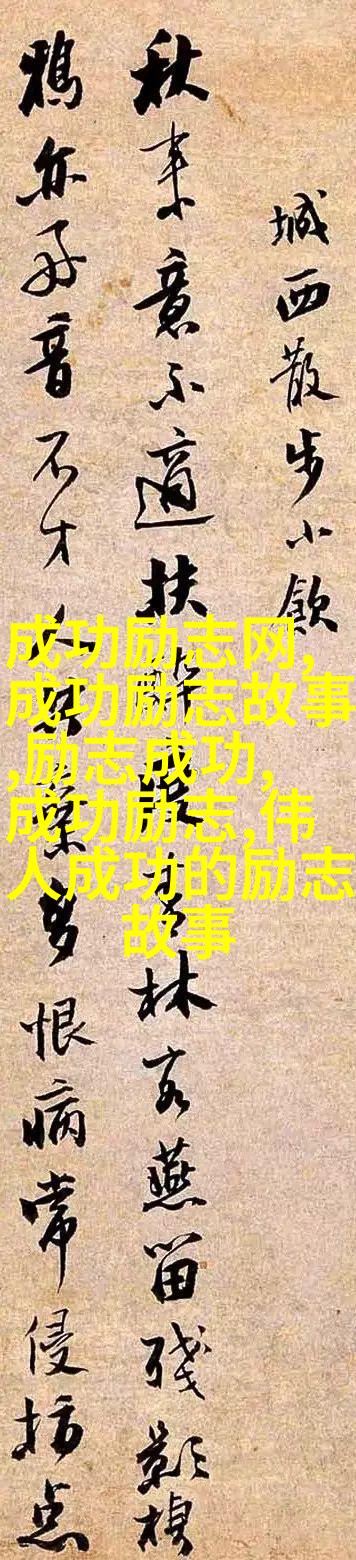 城西散步小飲
秋来意不適扶醉林客燕留殘影
鴉亦好音不才人恨病常侵
成功励志网,
成功励志故事
,励志成功,
成功励志,伟
人成功的励志
故事